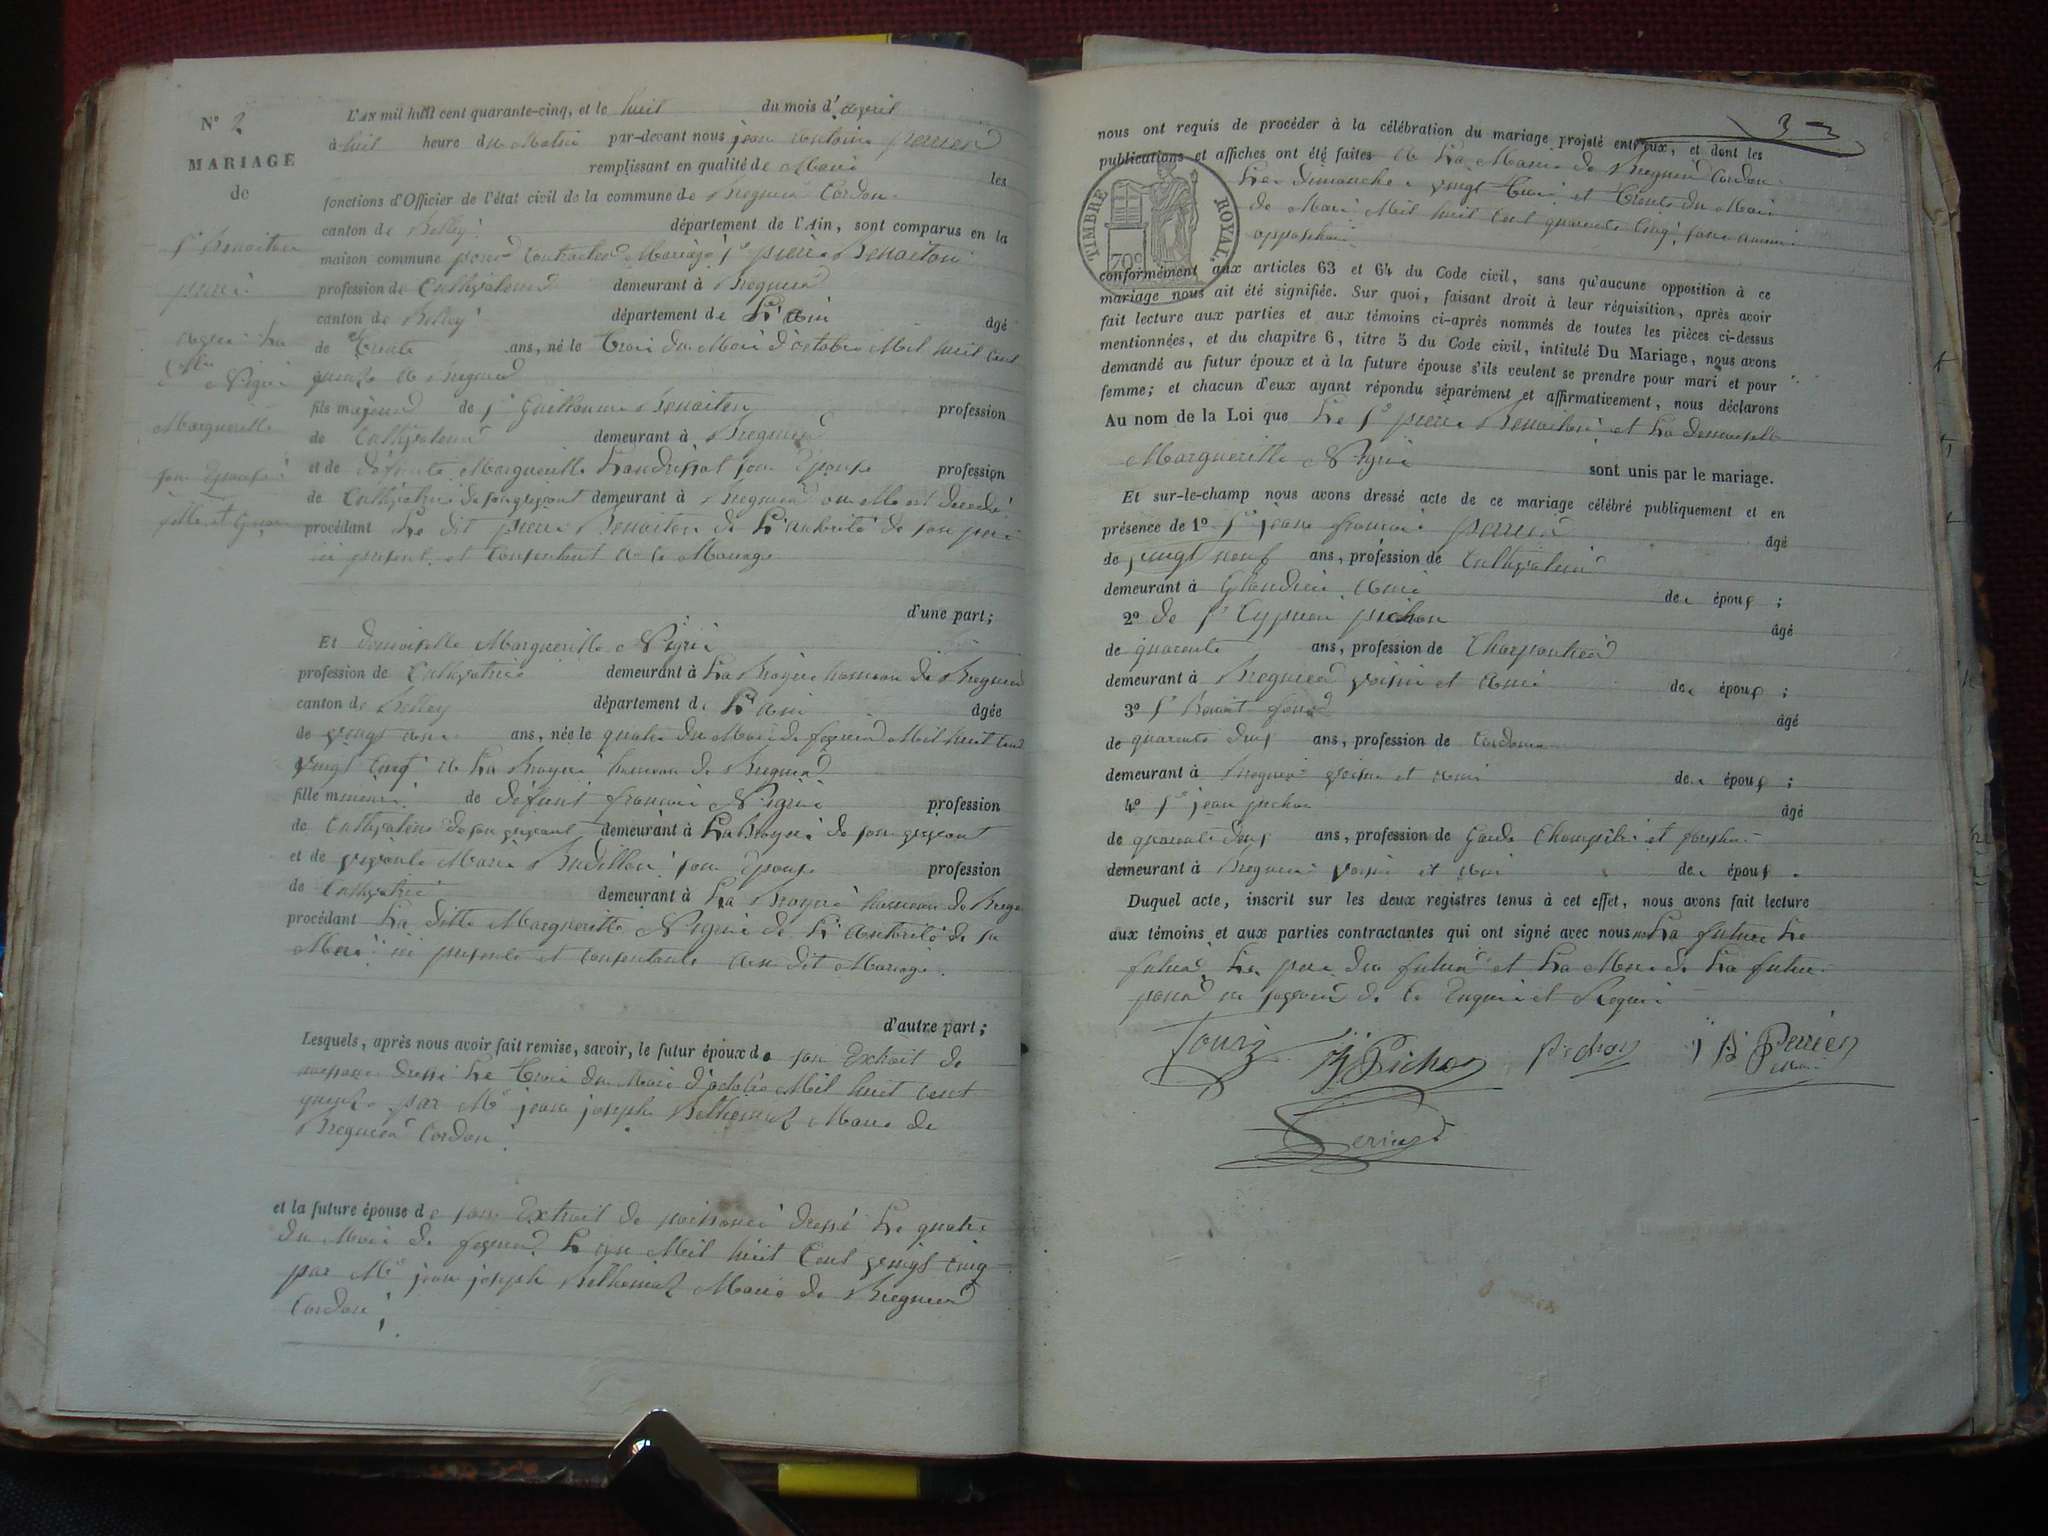 N° 2
MARIAGE
de
Sr Benoiton
pierre
avec la
dlle Nigrin
Margueritte
son Epouse
L'AN mil huit cent quarante-cinq, et le huit du mois d'avril
à huit heure du Matin par-devant nous jean antoine perrier
remplissant en qualité de Maire les
fonctions d'Officier de l'état civil de la commune de Bregnier Cordon
canton de Belley département de l'Ain, sont comparus en la
maison commune pour Contracter Mariage Sr pierre Benoiton
profession de Cultivateur demeurant à Bregnier
canton de Belley département de L'ain âgé
de trente ans, né le trois du Mois d'octobre Mil huit Cent
quinze à Bregnier
fils majeur de Sr Guillaume Benoiton profession
de Cultivateur demeurant à Bregnier
et de défunte Margueritte son Epouse profession
de Cultivatrice de son vivant demeurant à Bregnier ou elle est decedé
procédant Le dit pierre Benoiton de L'autorité de son père
ici present et Consentant à ce Mariage
d'une part;
Et demoiselle Margueritte Nigrin
profession de Cultivatrice demeurant à La Bruyere hameau de Bregnier
canton de Belley département de L'ain âgée
de vingt ans, née le quatre du Mois de fevrier Mil huit Cent
vingt Cinq à La Bruyere hameau de Bregnier
fille mineure de défunt francois Nigrin profession
de Cultivateur de son vivant demeurant à La Bruyere de son vivant
et de vivante Marie Budillon son Epouse profession
de Cultivatrice demeurant à La Bruyere hameau de Bregnier
procédant La ditte Margueritte Nigrin de L'autorité de sa
Mere ici presente et consentante au dit Mariage
d'autre part;
Lesquels, après nous avoir fait remise, savoir, le futur époux de son Extrait de
naissance dressé Le trois du Mois d'octobre Mil huit cent
quinze par Mr jean joseph Maire de
Bregnier Cordon
et la future épouse de son Extrait de naissance dressé Le quatre
du Mois de fevrier L'an Mil huit Cent vingt cinq
par Mr jean joseph Maire de Bregnier
Cordon
3
nous ont requis de procéder à la célébration du mariage projeté entr'eux, et dont les
publications et affiches ont été faites à La Mairie de Bregnier Cordon
Les dimanche vingt trois et trente du Mois
de Mars Mil huit Cent quarante Cinq, sans aucune
opposition
TIMBRE ROYAL
70c
conformément aux articles 63 et 64 du Code civil, sans qu'aucune opposition à ce
mariage nous ait été signifiée. Sur quoi, faisant droit à leur réquisition, après avoir
fait lecture aux parties et aux témoins ci-après nommés de toutes les pièces ci-dessus
mentionnées, et du chapitre 6, titre 5 du Code civil, intitulé Du Mariage, nous avons
demandé au futur époux et à la future épouse s'ils veulent se prendre pour mari et pour
femme; et chacun d'eux ayant répondu séparément et affirmativement, nous déclarons
Au nom de la Loi que Le Sr pierre Benoiton et La demoiselle
Margueritte Nigrin sont unis par le mariage.
Et sur-le-champ nous avons dressé acte de ce mariage célébré publiquement et en
présence de 1° Sr jean francois perrier âgé
de vingt neuf ans, profession de Cultivateur
demeurant à Glandieu ami des époux ;
2° de Sr Cyprien pichon âgé
de quarante ans, profession de Charpentier
demeurant à Bregnier voisin et ami des époux ;
3° Sr Benoit âgé
de quarante deux ans, profession de
demeurant à Bregnier voisin et ami des époux ;
4° Sr jean pichon âgé
de quarante deux ans, profession de Garde Champetre
demeurant à Bregnier voisin et ami des époux .
Duquel acte, inscrit sur les deux registres tenus à cet effet, nous avons fait lecture
aux témoins et aux parties contractantes qui ont signé avec nous non La future Le
futur, Le pere du futur et La Mere de La future
pour ne savoir de ce Enquis et Requis
Pichon Pichon Perrier
maire